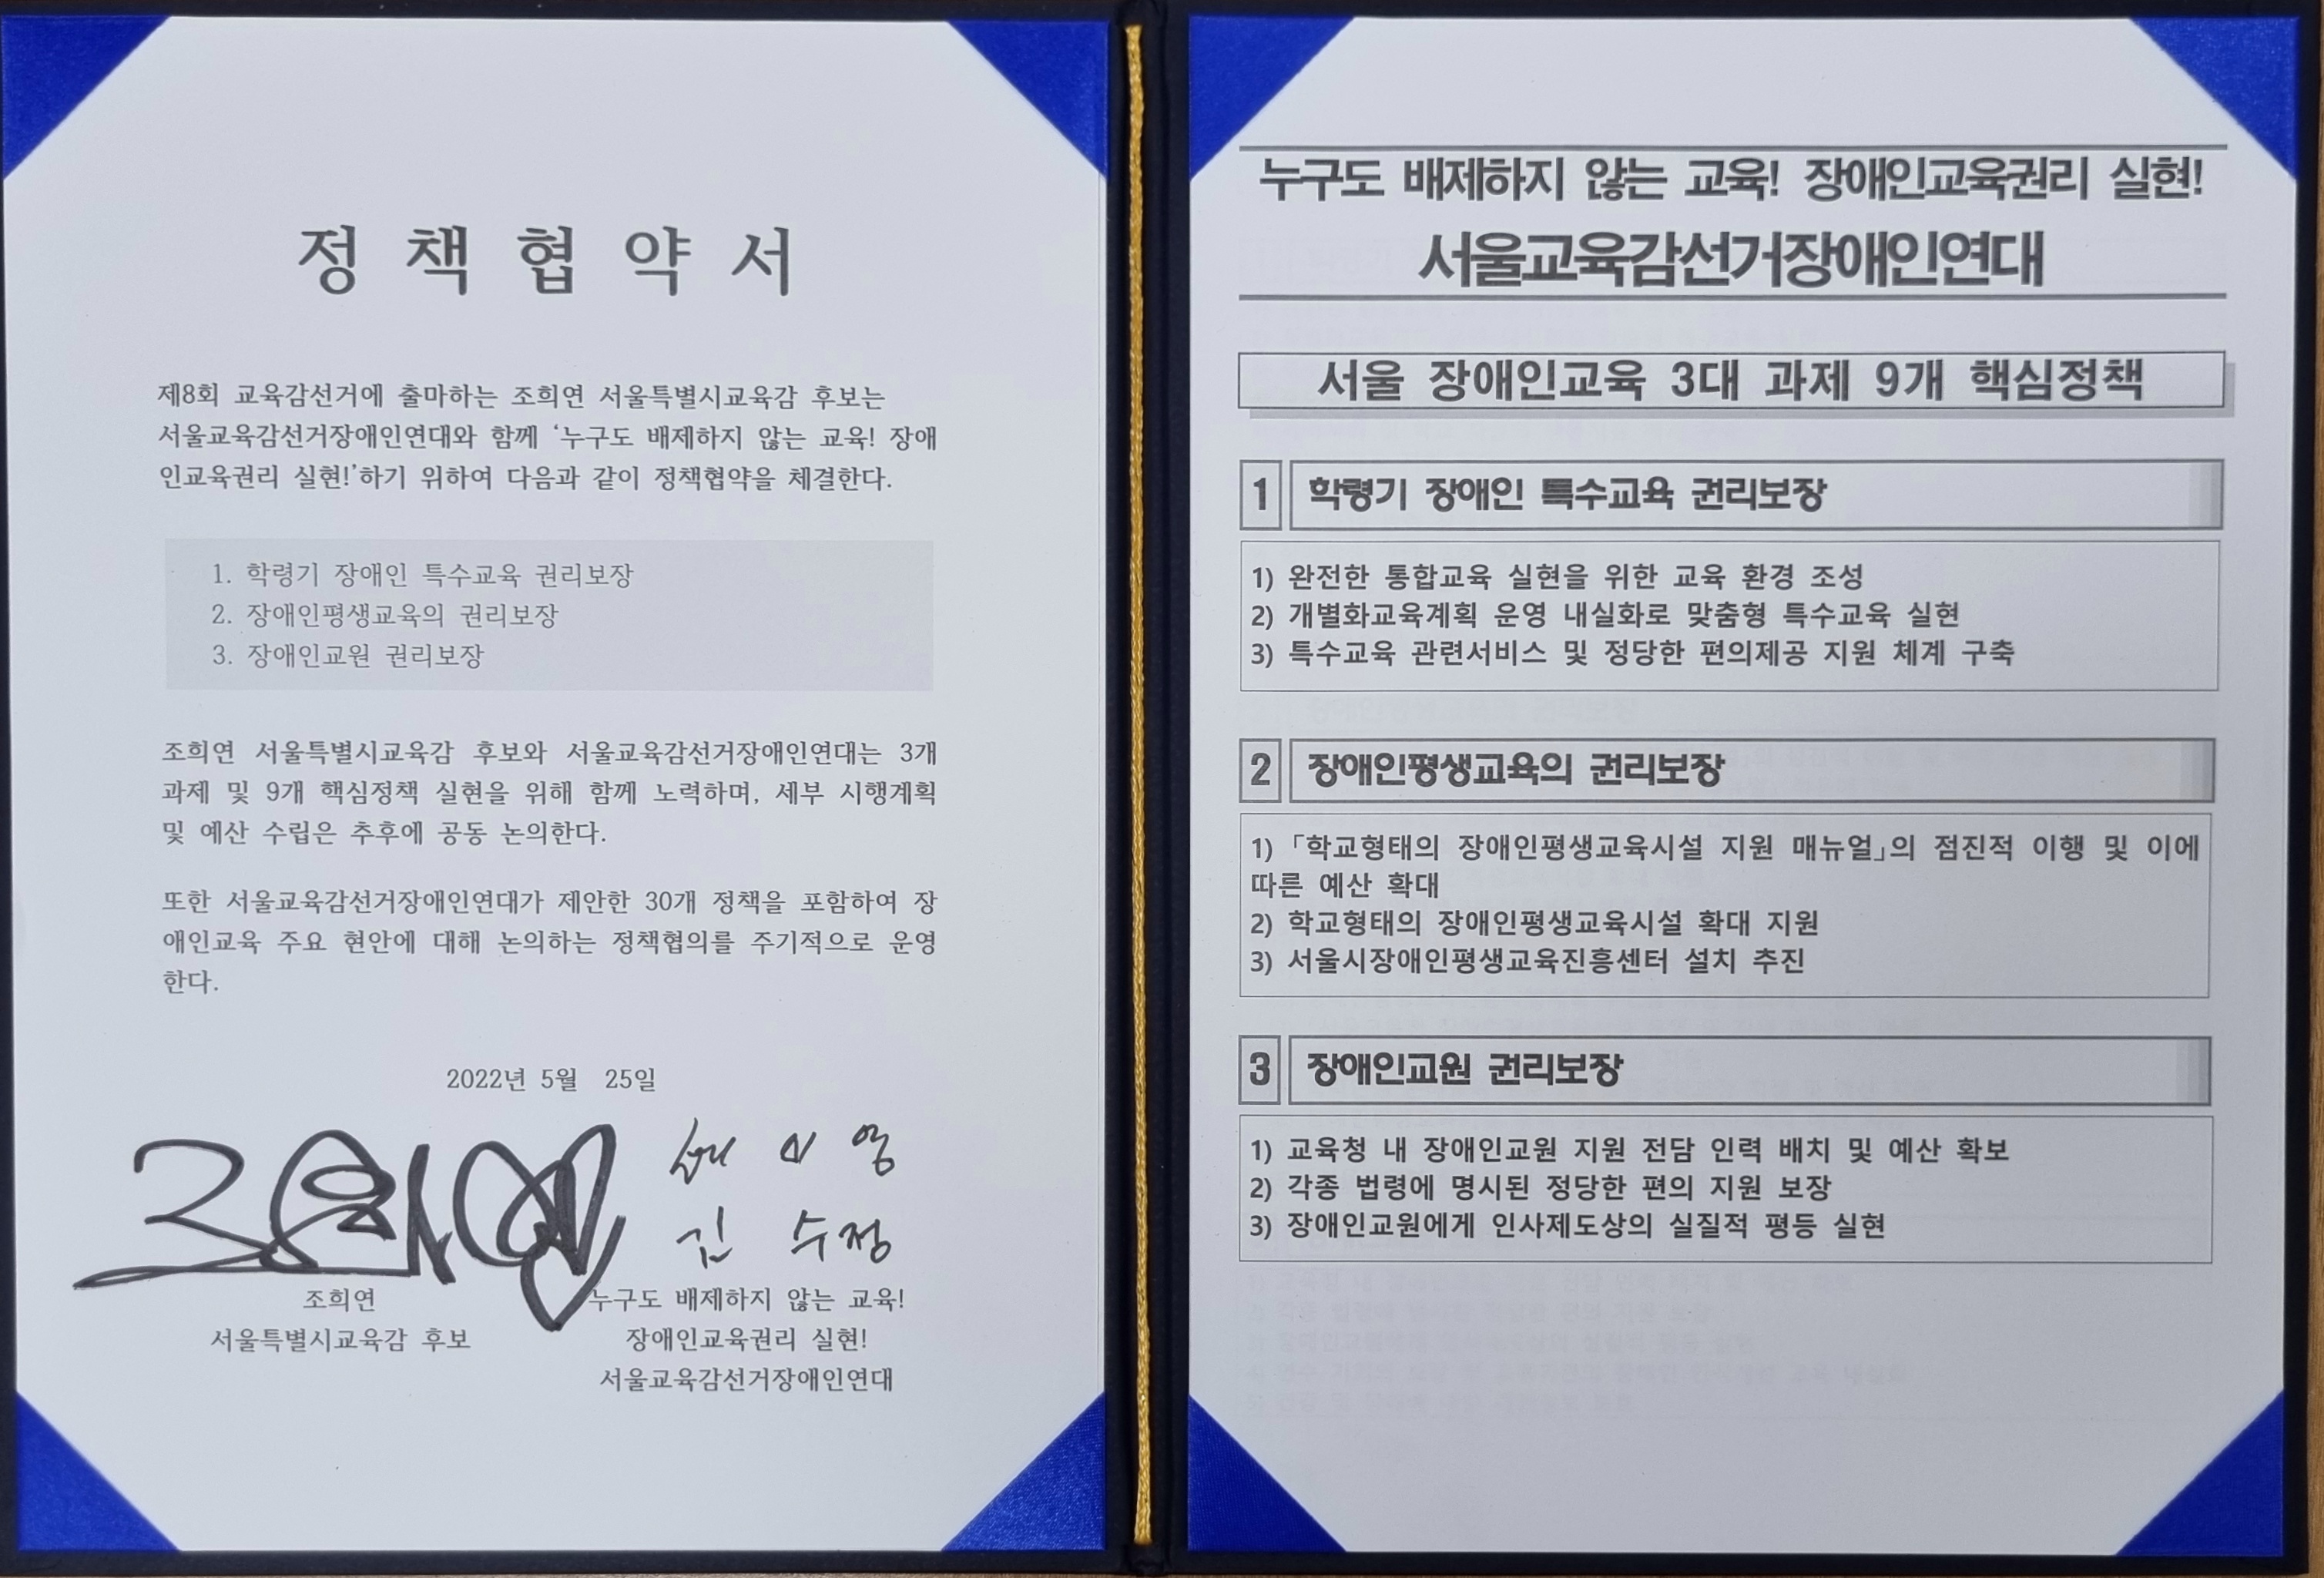 정 책 협 약 서
제8회 교육감선거에 출마하는 조희연 서울특별시교육감 후보는
서울교육감선거장애인연대와 함께 ‘누구도 배제하지 않는 교육! 장애
인교육권리 실현!’하기 위하여 다음과 같이 정책협약을 체결한다.
1. 학령기 장애인 특수교육 권리보장
2. 장애인평생교육의 권리보장
3. 장애인교원 권리보장
조희연 서울특별시교육감 후보와 서울교육감선거장애인연대는 3개
과제 및 9개 핵심정책 실현을 위해 함께 노력하며, 세부 시행계획
및 예산 수립은 추후에 공동 논의한다.
또한 서울교육감선거장애인연대가 제안한 30개 정책을 포함하여 장
애인교육 주요 현안에 대해 논의하는 정책협의를 주기적으로 운영
한다.
2022년 5월 25일
김 수정
조희연
서울특별시교육감 후보
누구도 배제하지 않는 교육!
장애인교육권리 실현!
서울교육감선거장애인연대
누구도 배제하지 않는 교육! 장애인교육권리 실현!
서울교육감선거장애인연대
서울 장애인교육 3대 과제 9개 핵심정책
1 학령기 장애인 특수교육 권리보장
1) 완전한 통합교육 실현을 위한 교육 환경 조성
2) 개별화교육계획 운영 내실화로 맞춤형 특수교육 실현
3) 특수교육 관련서비스 및 정당한 편의제공 지원 체계 구축
2 장애인평생교육의 권리보장
1) 「학교형태의 장애인평생교육시설 지원 매뉴얼」의 점진적 이행 및 이에
따른 예산 확대
2) 학교형태의 장애인평생교육시설 확대 지원
3) 서울시장애인평생교육진흥센터 설치 추진
3 장애인교원 권리보장
1) 교육청 내 장애인교원 지원 전담 인력 배치 및 예산 확보
2) 각종 법령에 명시된 정당한 편의 지원 보장
3) 장애인교원에게 인사제도상의 실질적 평등 실현